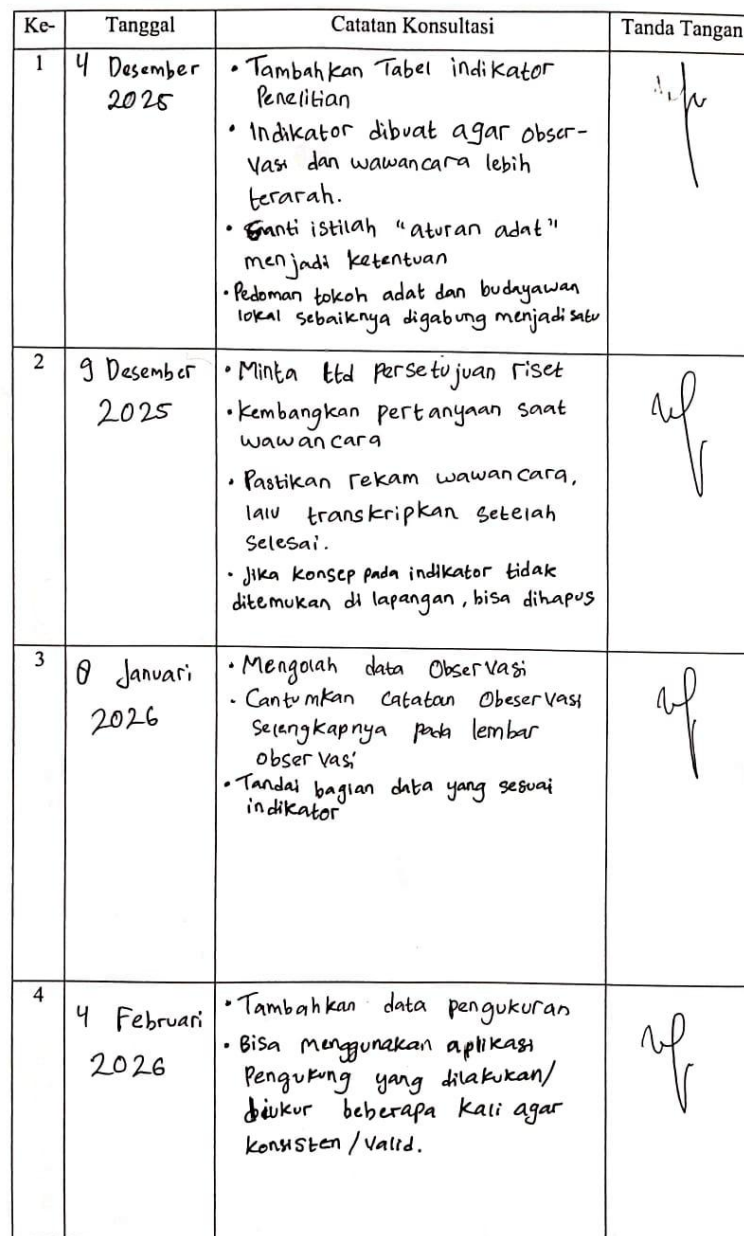 Ke- Tanggal Catatan Konsultasi Tanda Tangan
1 4 Desember 2025
• Tambahkan Tabel indikator
Penelitian
• Indikator dibuat agar obser-
vasi dan wawancara lebih
terarah.
• Ganti istilah "aturan adat"
menjadi ketentuan
• Pedoman tokoh adat dan budayawan
lokal sebaiknya digabung menjadi satu
2 9 Desember 2025
• Minta ttd persetujuan riset
• Kembangkan pertanyaan saat
wawancara
• Pastikan rekam wawancara,
lalu transkripkan setelah
selesai.
• Jika konsep pada indikator tidak
ditemukan di lapangan, bisa dihapus
3 Januari 2026
• Mengolah data Observasi
• Cantumkan catatan Obeservasi
selengkapnya pada lembar
observasi
• Tandai bagian data yang sesuai
indikator
4 4 Februari 2026
• Tambahkan data pengukuran
• Bisa menggunakan aplikasi
Pengukung yang dilakukan/
diukur beberapa kali agar
konsisten/valid.